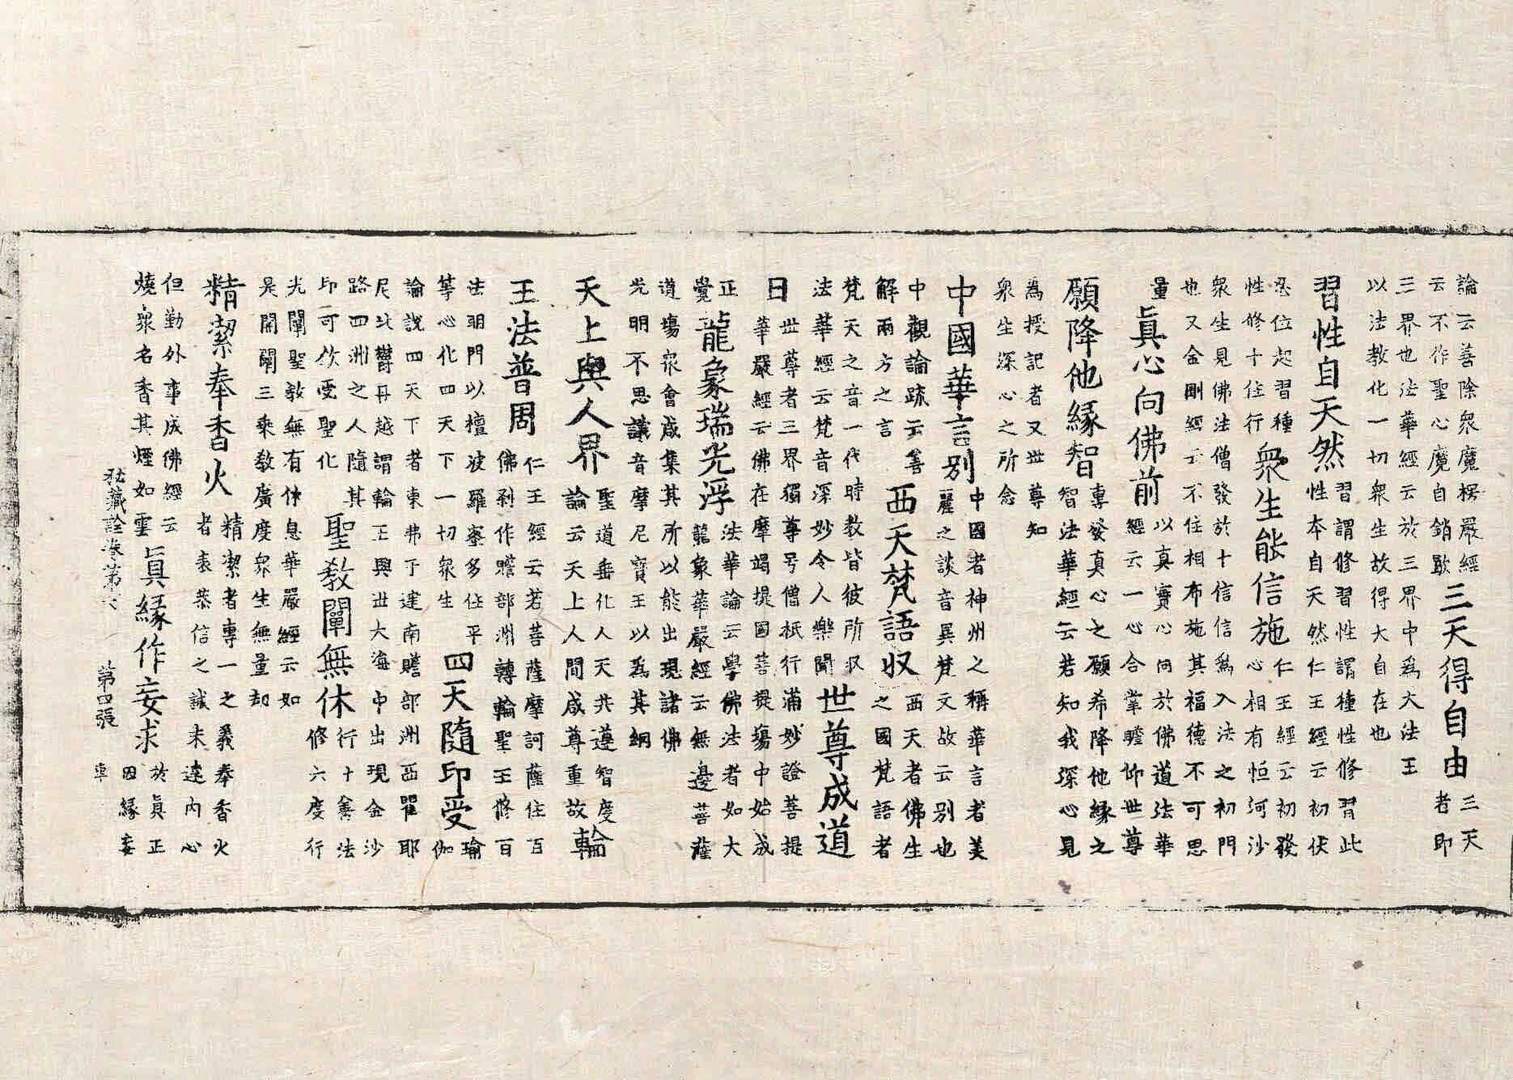 論云善除衆魔楞嚴經
云不作聖心魔自銷歇
三天得自由
三天
者即
三界也法華經云於三界中為大法王
以法教化一切衆生故得大自在也
習性自天然
習謂修習性謂種性修習此
性本自天然仁王經云初伏
忍位起習種
性修十住行
衆生能信施
仁王經云初發
心相有恒河沙
衆生見佛法僧發於十信信為入法之初門
也又金剛經云不住相布施其福德不可思
量
眞心向佛前
以真實心向於佛道法華
經云一心合掌瞻仰世尊
願降他縁智
專發真心之願希降他縁之
智法華經云若知我深心見
為授記者又世尊知
衆生深心之所念
中國華言別
中國者神州之稱華言者美
麗之談音異梵文故云別也
中觀論疏云善
解兩方之言
西天梵語収
西天者佛生
之國梵語者
梵天之音一代時教皆彼所収
法華經云梵音深妙令人樂聞
世尊成道
日
世尊者三界獨尊号僧祇行滿妙證菩提
華嚴經云佛在摩竭提國菩提場中始成
正
覺
龍象瑞光浮
法華論云學佛法者如大
龍象華嚴經云無邊菩薩
道場衆會咸集其所以能出現諸佛
光明不思議音摩尼寶王以為其網
天上與人界
聖道垂化人天共遵智度
論云天上人間咸尊重故
輪
王法普周
仁王經云若菩薩摩訶薩住百
佛剎作贍部洲轉輪聖王修百
法明門以檀波羅蜜多住平
等心化四天下一切衆生
四天隨印受
瑜
伽
論說四天下者東弗于逮南贍部洲西瞿耶
尼北欝丹越謂輪王興世大海中出現金沙
路四洲之人隨其
印可欽受聖化
聖教闡無休
行十善法
修六度行
光闡聖教無有休息華嚴經云如
是開闡三乘教廣度衆生無量劫
精潔奉香火
精潔者專一之義奉香火
者表恭信之誠未達內心
但勤外事成佛經云
燒衆名香其煙如雲
眞縁作妄求
於眞正
因縁妄
秘藏詮卷第六 第四張 車